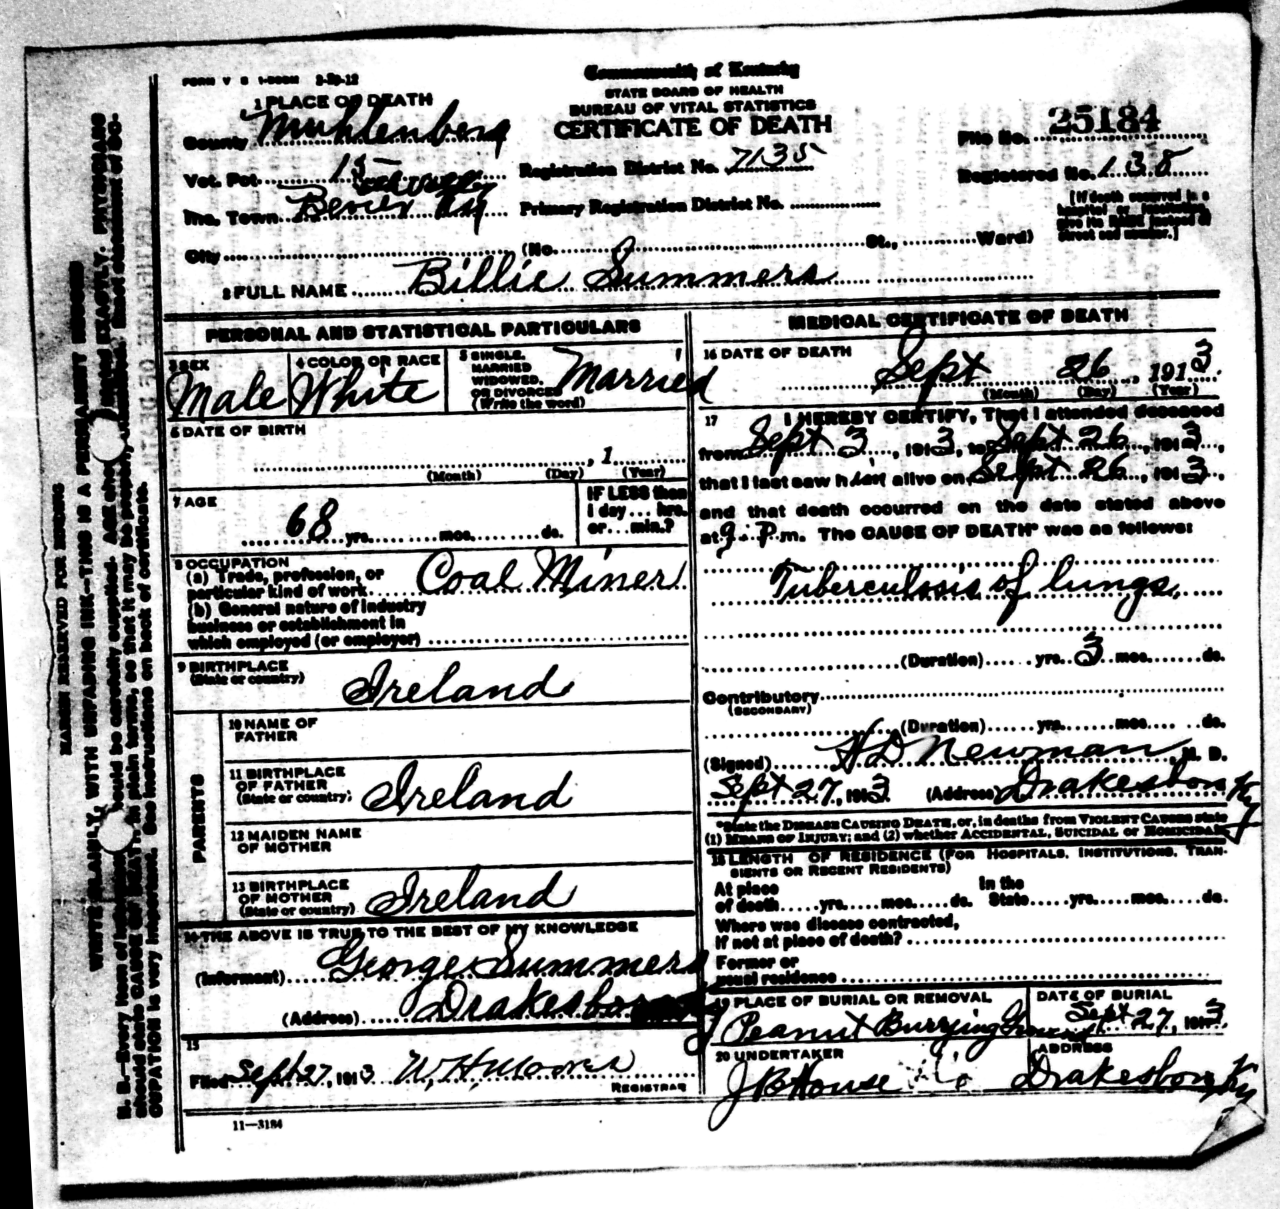 FORM V S 1-500M 3-29-12
Commonwealth of Kentucky
STATE BOARD OF HEALTH
BUREAU OF VITAL STATISTICS
CERTIFICATE OF DEATH
1 PLACE OF DEATH
County Muhlenberg
Vot. Pct. 15
Inc. Town Bevier Ky
City (No. St., Ward)
Registration District No. 7135
Primary Registration District No.
File No. 25184
Registered No. 138
[If death occurred in a
hospital or institution
give its NAME instead of
street and number.]
2 FULL NAME Billie Summers
PERSONAL AND STATISTICAL PARTICULARS
3 SEX
Male
4 COLOR OR RACE
White
5 SINGLE,
MARRIED
WIDOWED,
OR DIVORCED
(Write the word)
Married
6 DATE OF BIRTH
, 1
(Month) (Day) (Year)
7 AGE
68 yrs. mos. ds.
IF LESS than
1 day ... hrs.
or ... min.?
8 OCCUPATION
(a) Trade, profession, or
particular kind of work Coal Miner
(b) General nature of industry
business or establishment in
which employed (or employer)
9 BIRTHPLACE
(State or country)
Ireland
PARENTS
10 NAME OF
FATHER
11 BIRTHPLACE
OF FATHER
(State or country)
Ireland
12 MAIDEN NAME
OF MOTHER
13 BIRTHPLACE
OF MOTHER
(State or country)
Ireland
14 THE ABOVE IS TRUE TO THE BEST OF MY KNOWLEDGE
(Informant) George Summers
(Address) Drakesboro
15
Filed Sept 27, 1913 W. H. Moores
REGISTRAR
11—3184
MEDICAL CERTIFICATE OF DEATH
16 DATE OF DEATH
Sept 26, 1913
(Month) (Day) (Year)
17 I HEREBY CERTIFY, That I attended deceased
from Sept 3, 1913, to Sept 26, 1913,
that I last saw him alive on Sept 26, 1913,
and that death occurred on the date stated above
at 9 P m. The CAUSE OF DEATH* was as follows:
Tuberculosis of lungs.
(Duration) yrs. 3 mos. ds.
Contributory
(SECONDARY)
(Duration) yrs. mos. ds.
(Signed) H D Newman, M. D.
Sept 27, 1913 (Address) Drakesboro Ky
*State the DISEASE CAUSING DEATH, or, in deaths from VIOLENT CAUSES state
(1) MEANS OF INJURY; and (2) whether ACCIDENTAL, SUICIDAL or HOMICIDAL
18 LENGTH OF RESIDENCE (FOR HOSPITALS, INSTITUTIONS, TRAN-
SIENTS OR RECENT RESIDENTS)
At place
of death yrs. mos. ds.
In the
State yrs. mos. ds.
Where was disease contracted,
if not at place of death?
Former or
usual residence
19 PLACE OF BURIAL OR REMOVAL
Peanut Burrying Ground
DATE OF BURIAL
Sept 27, 1913
20 UNDERTAKER
J B House
ADDRESS
Drakesboro Ky
MARGIN RESERVED FOR BINDING
WRITE PLAINLY, WITH UNFADING INK—THIS IS A PERMANENT RECORD
N. B.—Every item of should be carefully supplied. AGE should be stated EXACTLY. PHYSICIANS
should state CAUSE OF DEATH in plain terms, so that it may be properly classified. Exact statement of OC-
CUPATION is very important. See instructions on back of certificate.